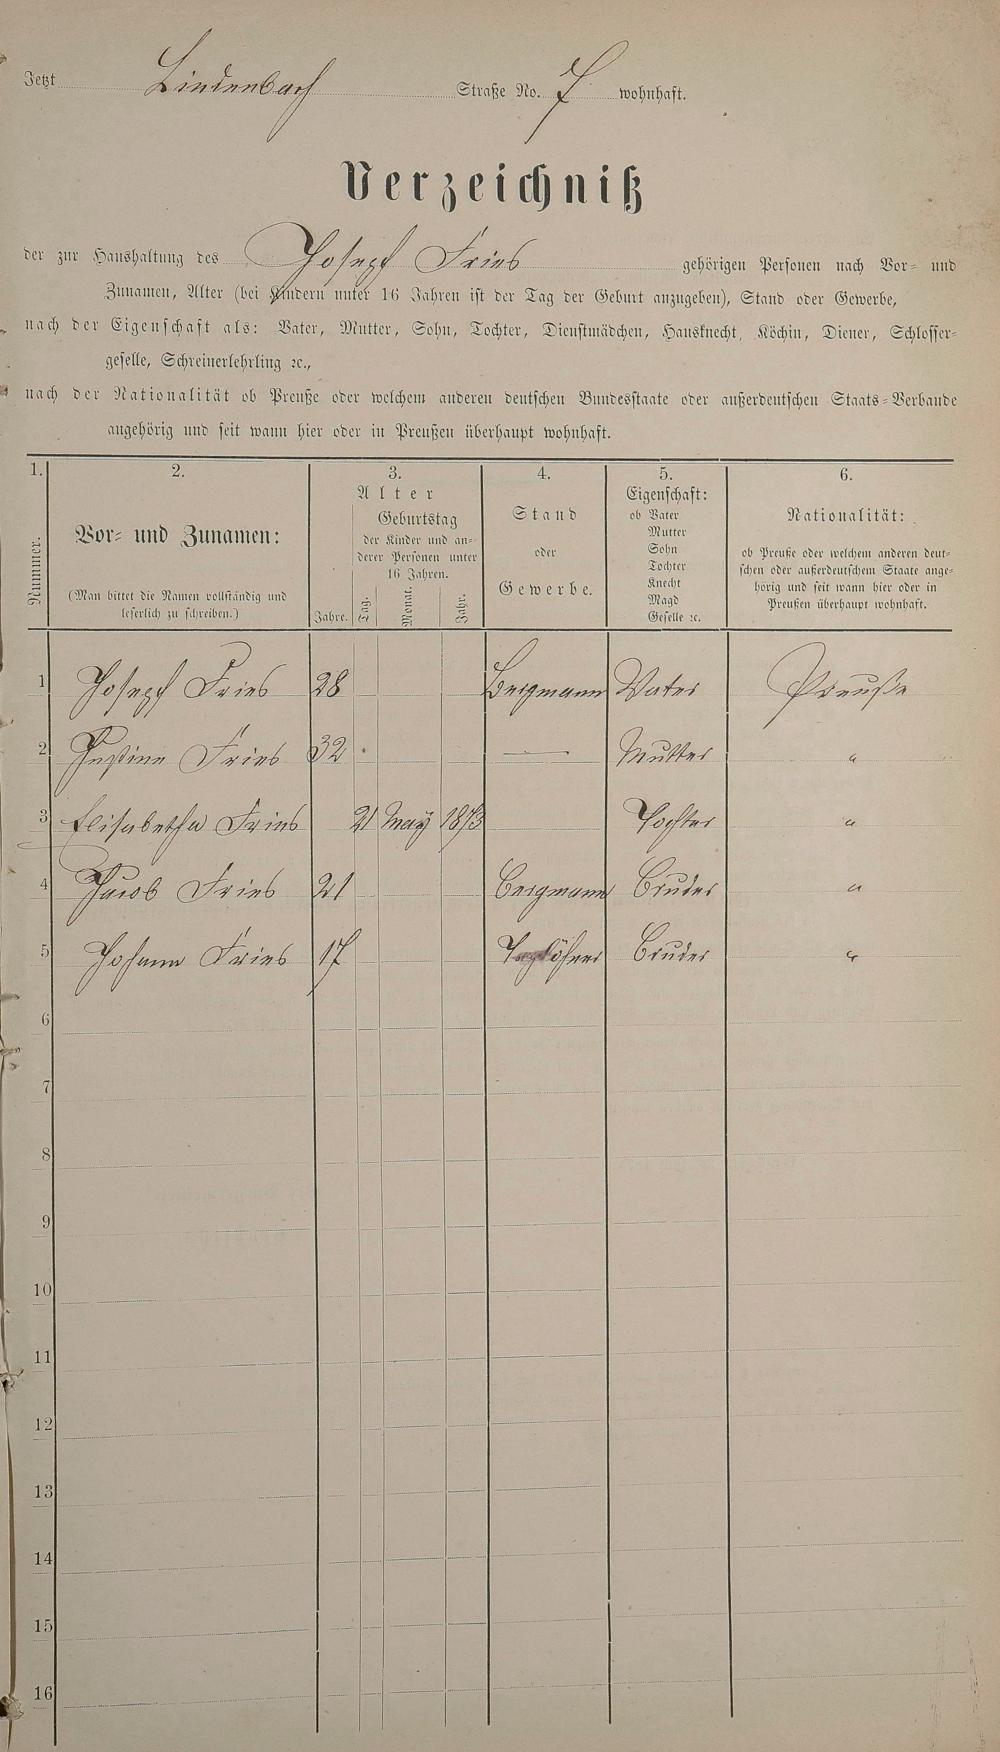 Jetzt Lindenbach Straße No. 7 wohnhaft.
Verzeichniß
der zur Haushaltung des Joseph Fries gehörigen Personen nach Vor- und
Zunamen, Alter (bei Kindern unter 16 Jahren ist der Tag der Geburt anzugeben), Stand oder Gewerbe,
nach der Eigenschaft als: Vater, Mutter, Sohn, Tochter, Dienstmädchen, Hausknecht, Köchin, Diener, Schlosser-
geselle, Schreinerlehrling ꝛc.,
nach der Nationalität ob Preuße oder welchem anderen deutschen Bundesstaate oder außerdeutschen Staats-Verbande
angehörig und seit wann hier oder in Preußen überhaupt wohnhaft.
1.
Nummer.
2.
Vor- und Zunamen:
(Man bittet die Namen vollständig und
leserlich zu schreiben.)
3.
Alter
Geburtstag
der Kinder und an-
derer Personen unter
16 Jahren.
Jahre. Tag. Monat. Jahr.
4.
Stand
oder
Gewerbe.
5.
Eigenschaft:
ob Vater
Mutter
Sohn
Tochter
Knecht
Magd
Geselle ꝛc.
6.
Nationalität:
ob Preuße oder welchem anderen deut-
schen oder außerdeutschem Staate ange-
hörig und seit wann hier oder in
Preußen überhaupt wohnhaft.
1 Joseph Fries 28 Bergmann Vater Preuße
2 Justine Fries 32 — Mutter "
3 Elisabetha Fries 21 May 1873 Tochter "
4 Jacob Fries 21 Bergmann Bruder "
5 Johann Fries 17 Taglöhner Bruder "
6
7
8
9
10
11
12
13
14
15
16